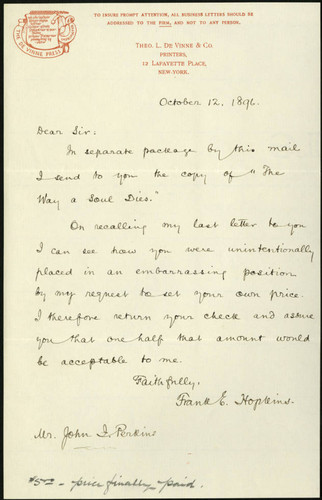 TO INSURE PROMPT ATTENTION, ALL BUSINESS LETTERS SHOULD BE
ADDRESSED TO THE FIRM, AND NOT TO ANY PERSON.
THE DE VINNE PRESS
THEO. L. DE VINNE & CO.
PRINTERS,
12 LAFAYETTE PLACE,
NEW-YORK.
October 12, 1896.
Dear Sir:
In separate package by this mail
I send to you the copy of "The
Way a Soul Dies."
On recalling my last letter to you
I can see how you were unintentionally
placed in an embarrassing position
by my request to set your own price.
I therefore return your check and assure
you that one half that amount would
be acceptable to me.
Faithfully,
Frank E. Hopkins.
Mr. John I. Perkins
price finally paid.